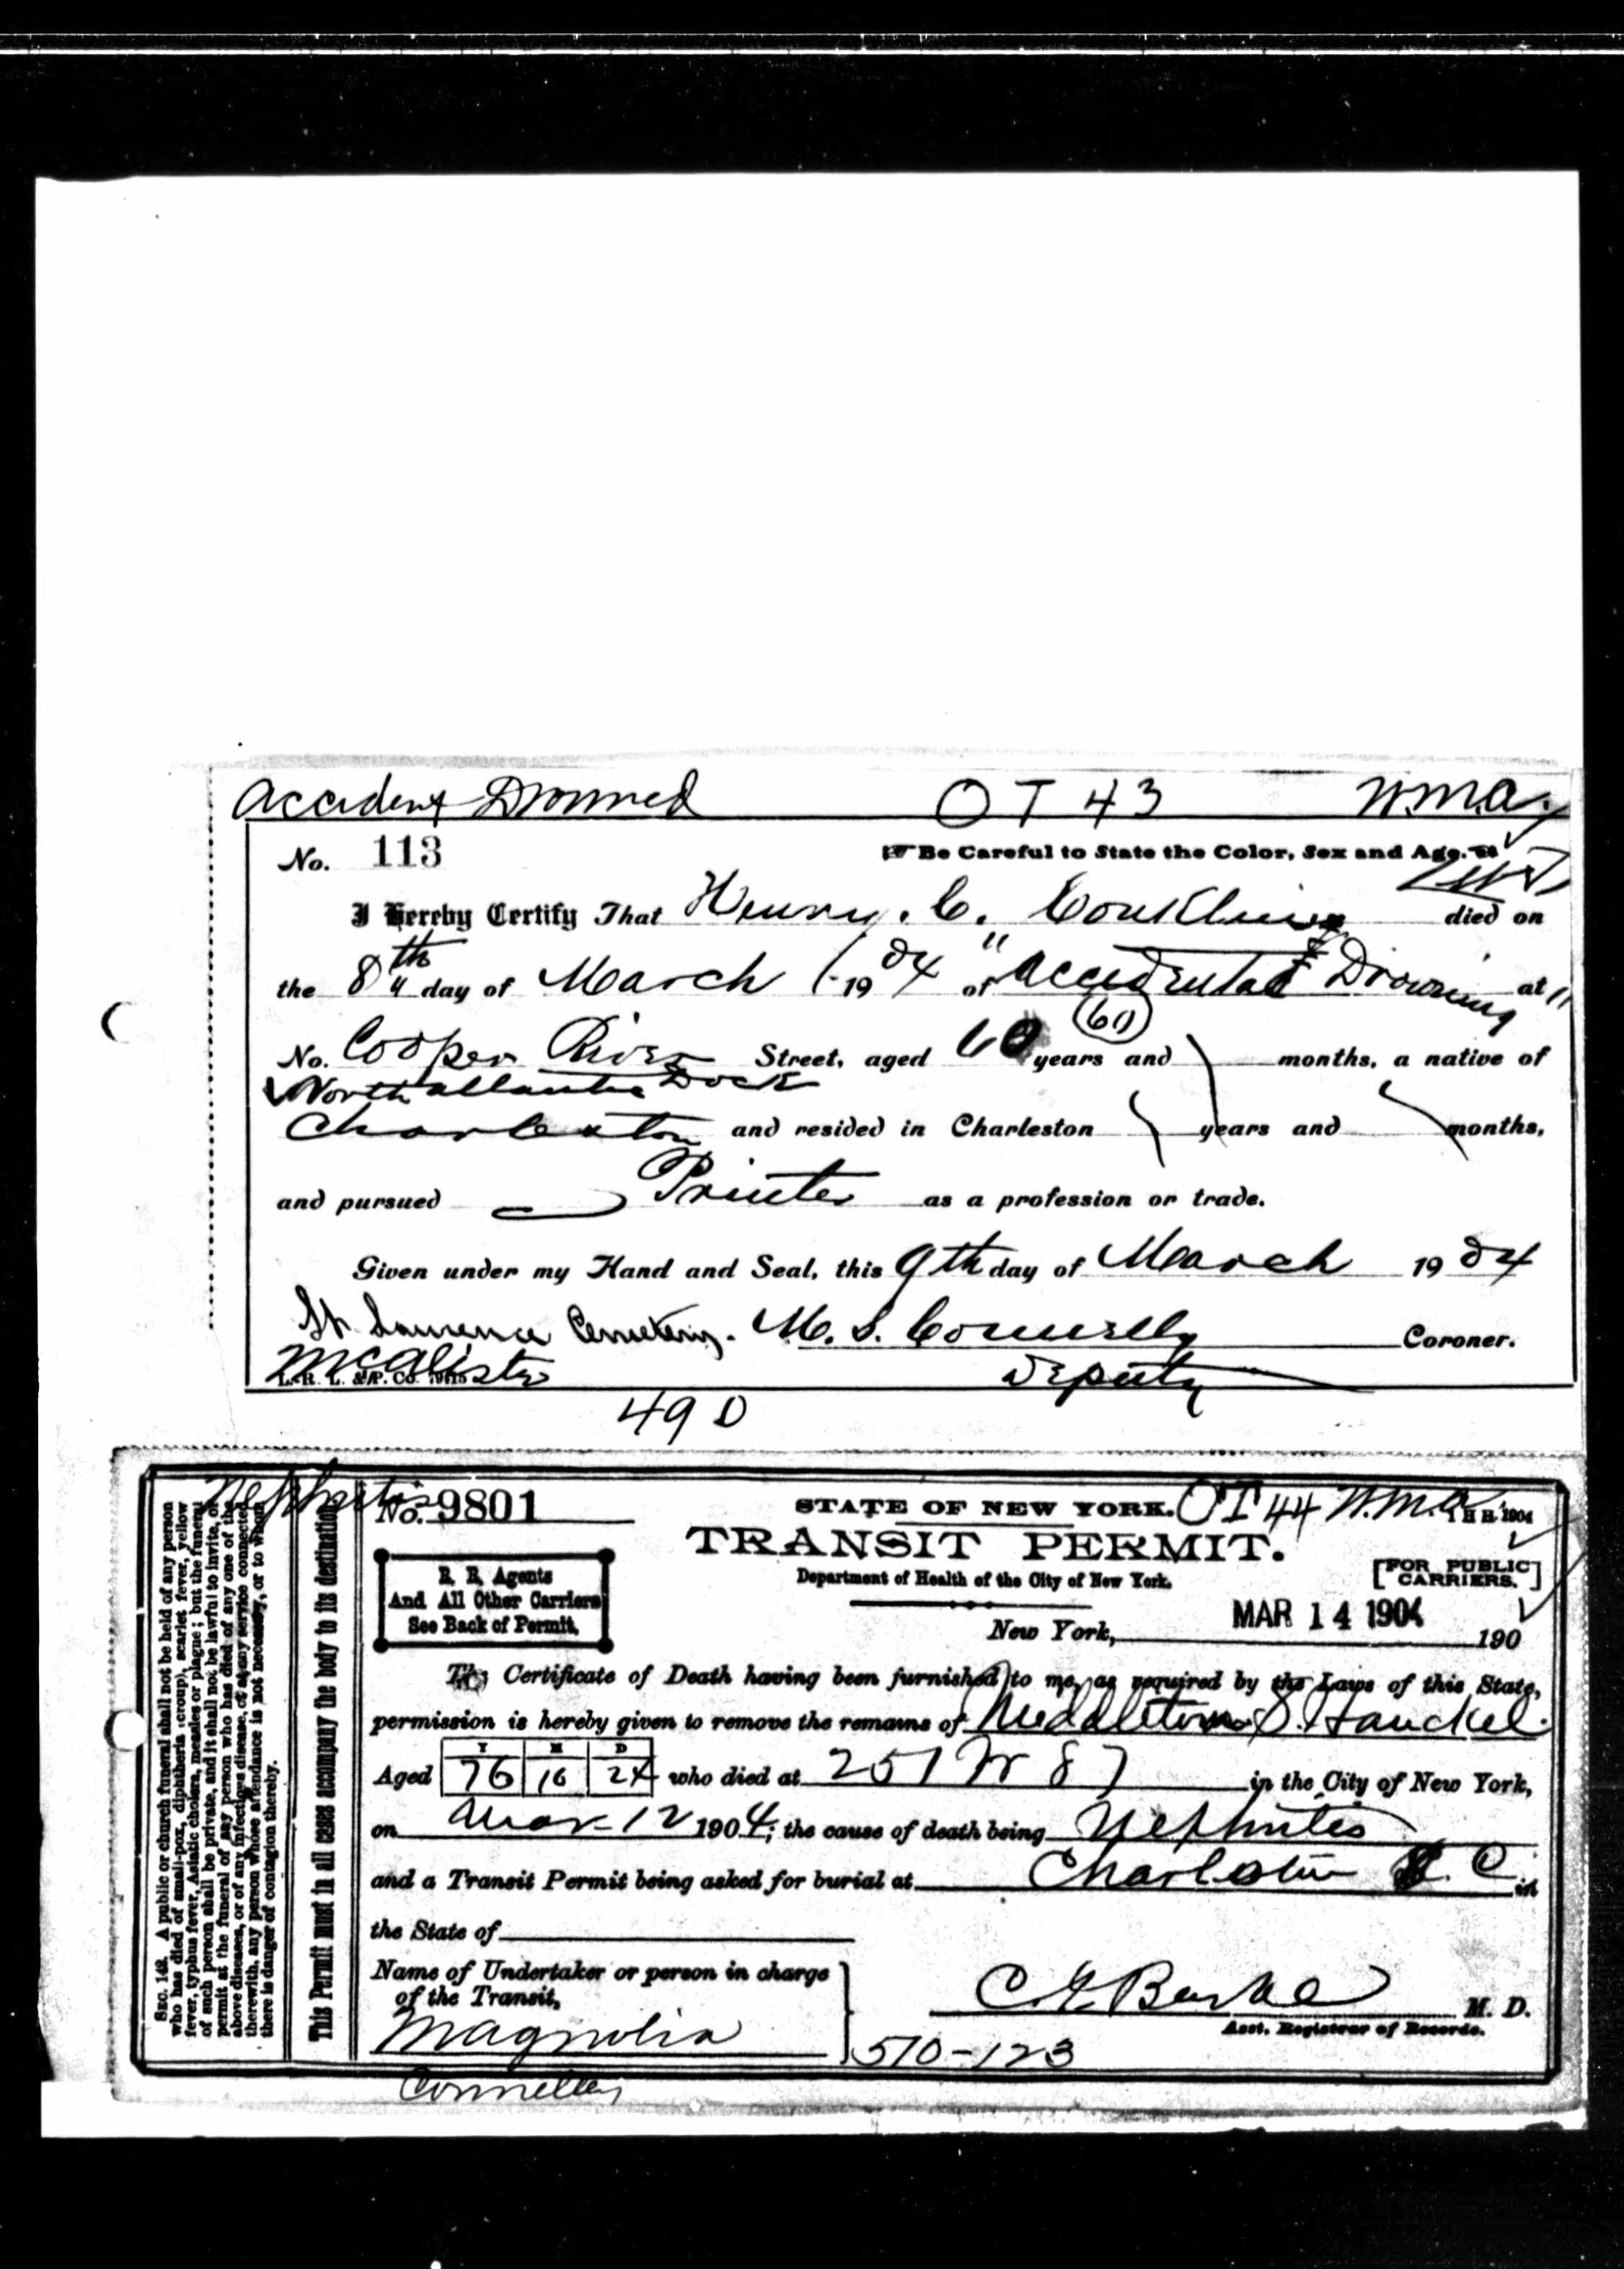 Accident Drowned OT 43 W.M.A.
No. 113 Be Careful to State the Color, Sex and Age.
I Hereby Certify That Henry. C. Conklin died on
the 8th day of March 1904 of "Accidental Drowning at"
(60)
No. Cooper River Street, aged 60 years and months, a native of
North Atlantic Dock
Charleston and resided in Charleston years and months,
and pursued Printer as a profession or trade.
Given under my Hand and Seal, this 9th day of March 1904
St Laurence Cemetery. M. S. Connelly Coroner.
McAlister Deputy
L. R. L. & P. Co.
49 D
Nephritis
No. 9801 STATE OF NEW YORK. OT 44 W.M.A. 1904
TRANSIT PERMIT.
R. R. Agents
And All Other Carriers
See Back of Permit.
Department of Health of the City of New York.
[FOR PUBLIC CARRIERS.]
New York, MAR 14 1904 190
The Certificate of Death having been furnished to me, as required by the Laws of this State,
permission is hereby given to remove the remains of Middleton S. Hanckel.
Y M D
Aged 76 10 24 who died at 251 W 87 in the City of New York,
on Mar 12 1904; the cause of death being Nephritis
and a Transit Permit being asked for burial at Charleston S. C. in
the State of
Name of Undertaker or person in charge
of the Transit,
Magnolia
C. G. Burke M. D.
Asst. Registrar of Records.
510-123
Connelley
This Permit must in all cases accompany the body to its destination
SEC. 142. A public or church funeral shall not be held of any person
who has died of small-pox, diphtheria (croup), scarlet fever, yellow
fever, typhus fever, Asiatic cholera, measles or plague; but the funeral
of such person shall be private, and it shall not be lawful to invite, or
permit at the funeral of any person who has died of any one of the
above diseases, or of any infectious disease, or at any service connected
therewith, any person whose attendance is not necessary, or to whom
there is danger of contagion thereby.